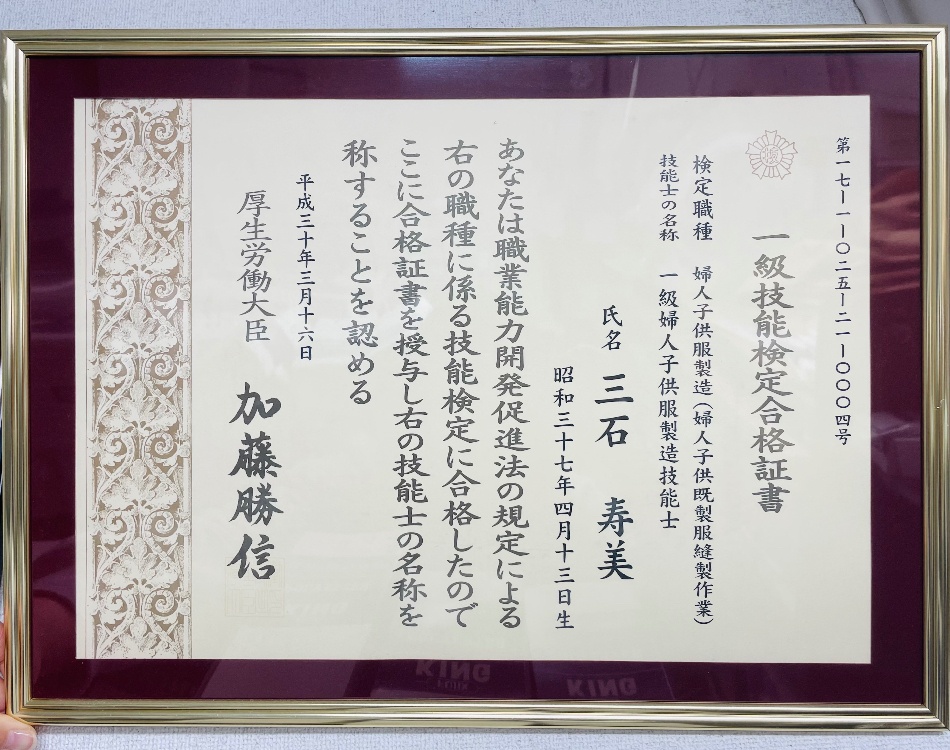 第一七ー一ー〇二五ー二一ー〇〇〇四号
一級技能検定合格証書
検定職種 婦人子供服製造(婦人子供既製服縫製作業)
技能士の名称 一級婦人子供服製造技能士
氏名 三石 寿美
昭和三十七年四月十三日生
あなたは職業能力開発促進法の規定による
右の職種に係る技能検定に合格したので
ここに合格証書を授与し右の技能士の名称を
称することを認める
平成三十年三月十六日
厚生労働大臣 加藤勝信
KING
KING